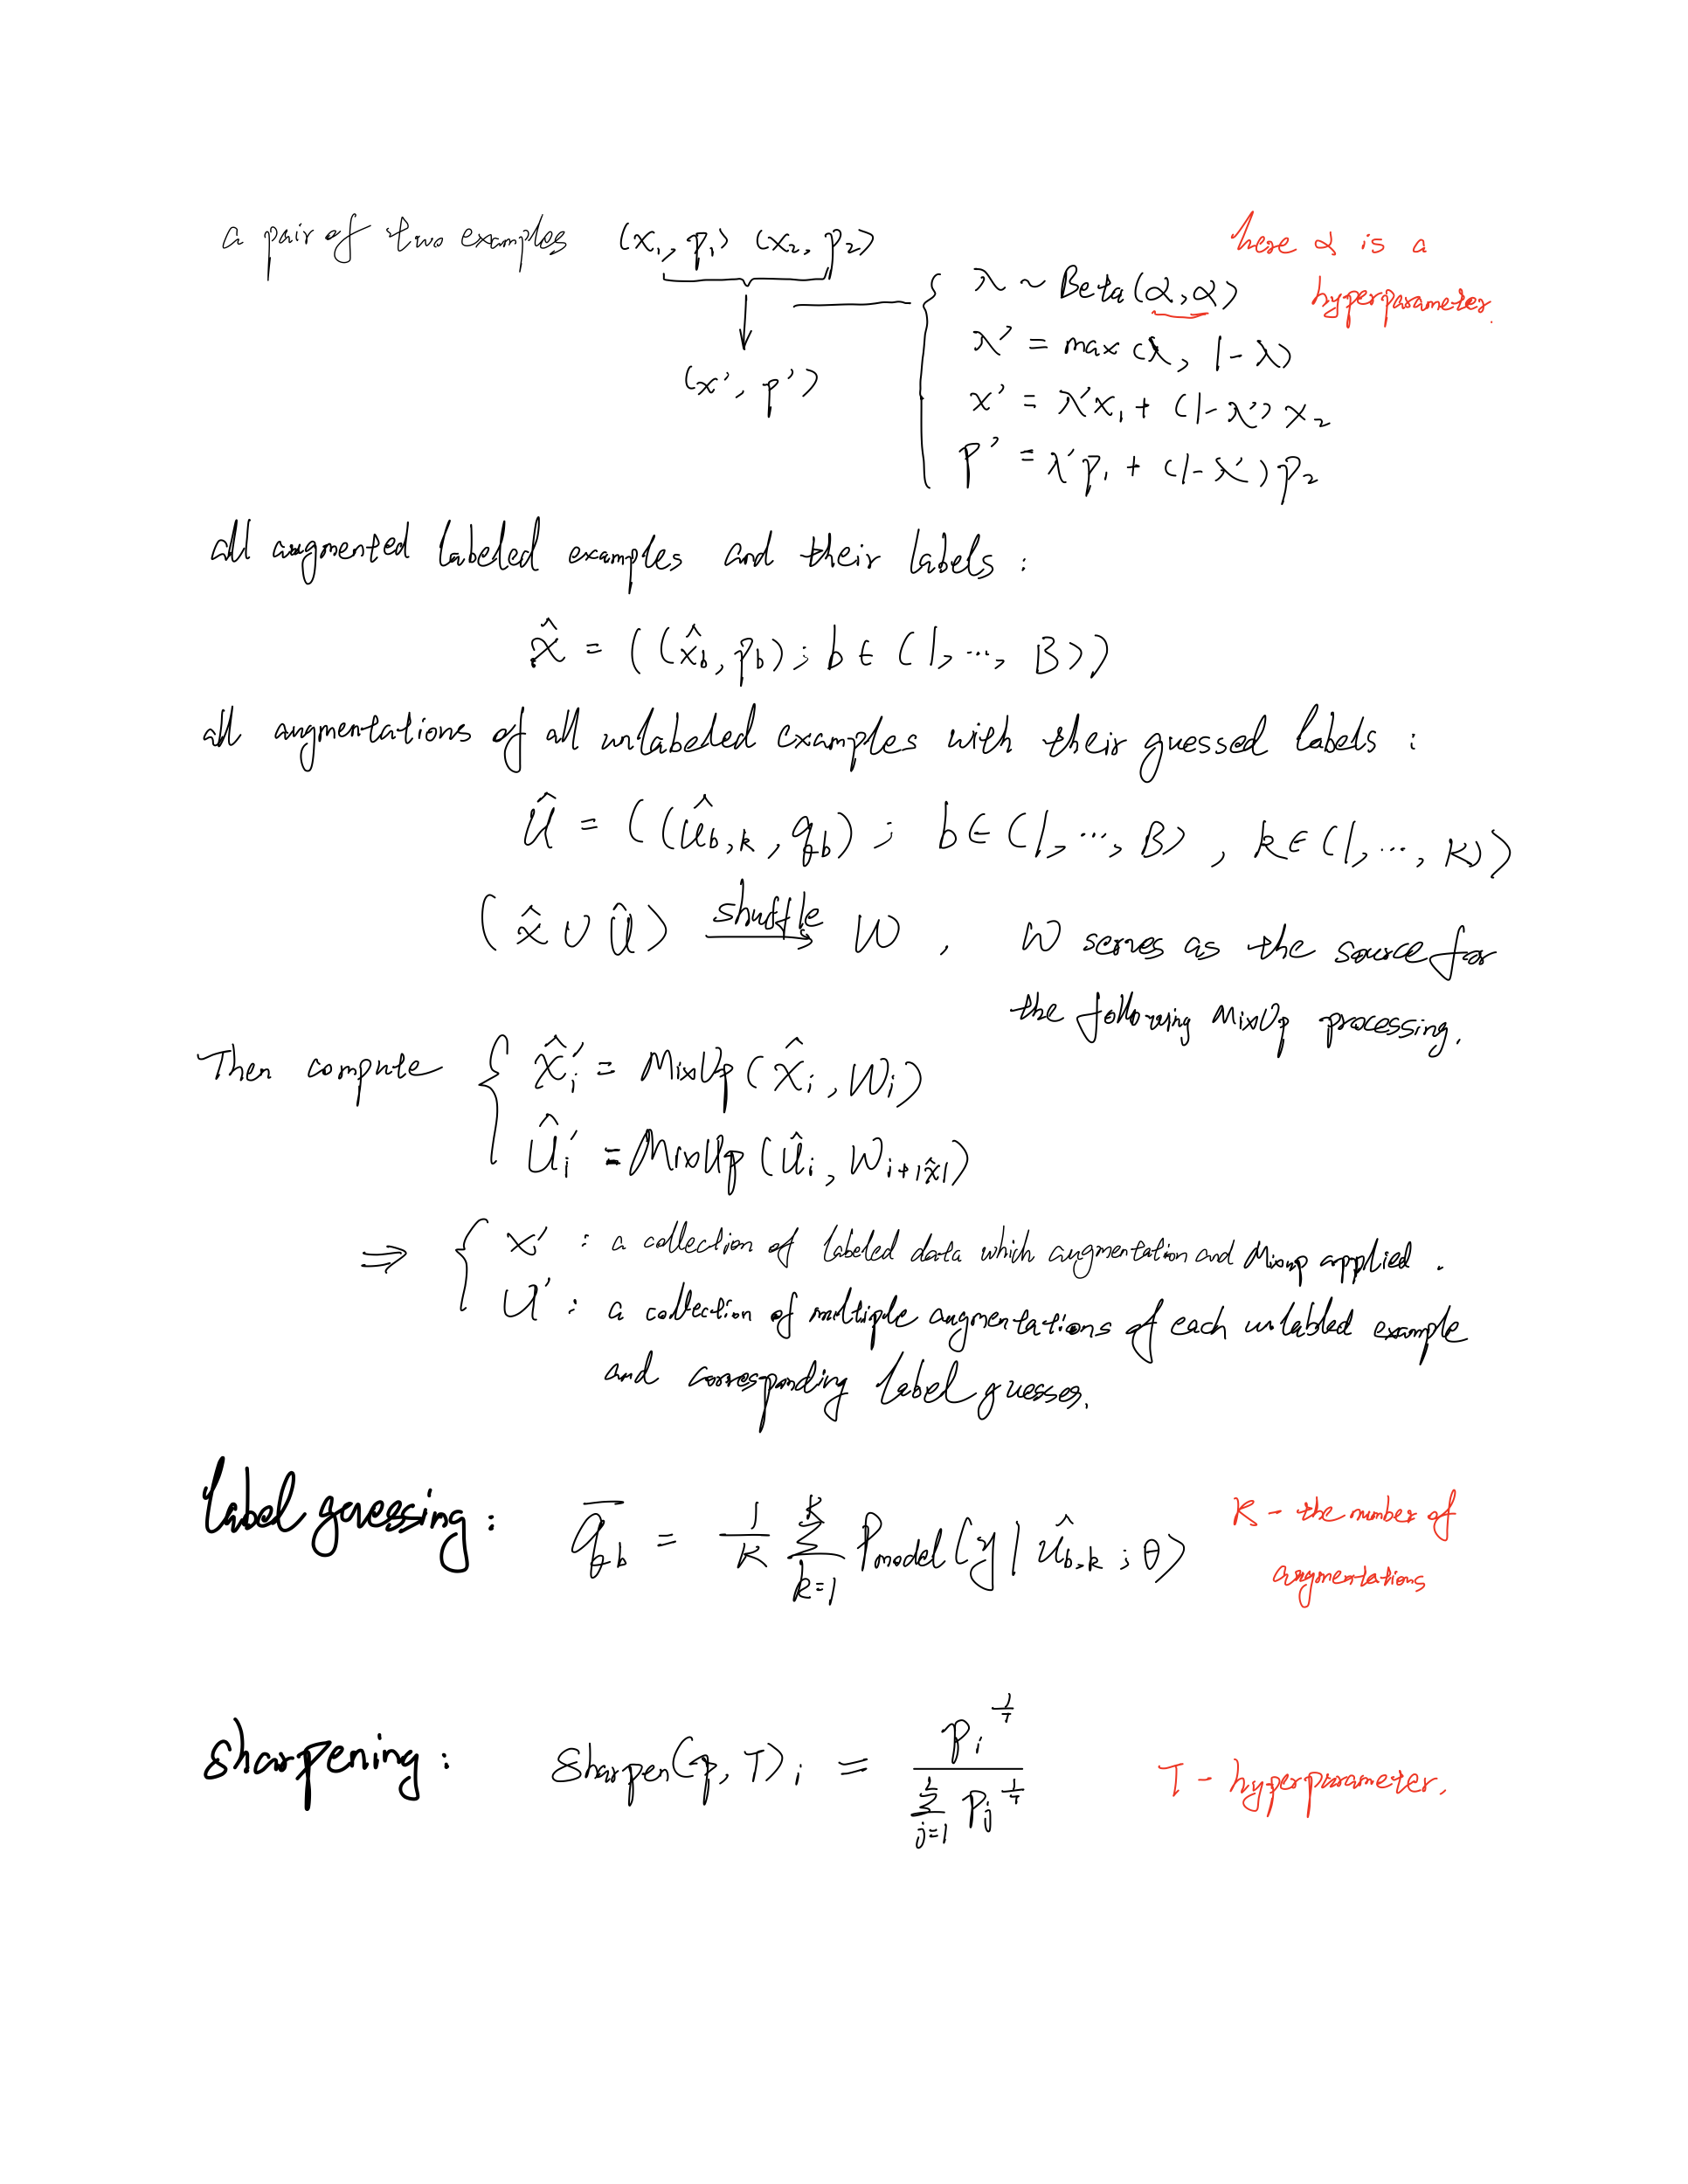 a pair of two examples (x₁, p₁) (x₂, p₂)
here α is a
hyperparameter.
λ ~ Beta(α, α)
λ' = max(λ, 1-λ)
(x', p')
x' = λ'x₁ + (1-λ')x₂
p' = λ'p₁ + (1-λ')p₂
all augmented labeled examples and their labels :
X̂ = ((x̂_b, p_b); b ∈ (1, ..., B))
all augmentations of all unlabeled examples with their guessed labels :
Û = ((û_{b,k}, q_b); b ∈ (1, ..., B), k ∈ (1, ..., K))
(X̂ ∪ Û) shuffle → W, W serves as the source for
the following MixUp processing.
Then compute { X̂ᵢ' = MixUp(X̂ᵢ, Wᵢ)
Ûᵢ' = MixUp(Ûᵢ, W_{i+|X̂|})
⇒ { X' : a collection of labeled data which augmentation and Mixup applied.
U' : a collection of multiple augmentations of each unlabled example
and corresponding label guesses.
label guessing : q̄_b = 1/K ∑_{k=1}^{K} P_model(y | û_{b,k} ; θ)
K - the number of
augmentations
sharpening : Sharpen(p, T)ᵢ = pᵢ^{1/T} / ∑_{j=1}^{L} pⱼ^{1/T}
T - hyperparameter.